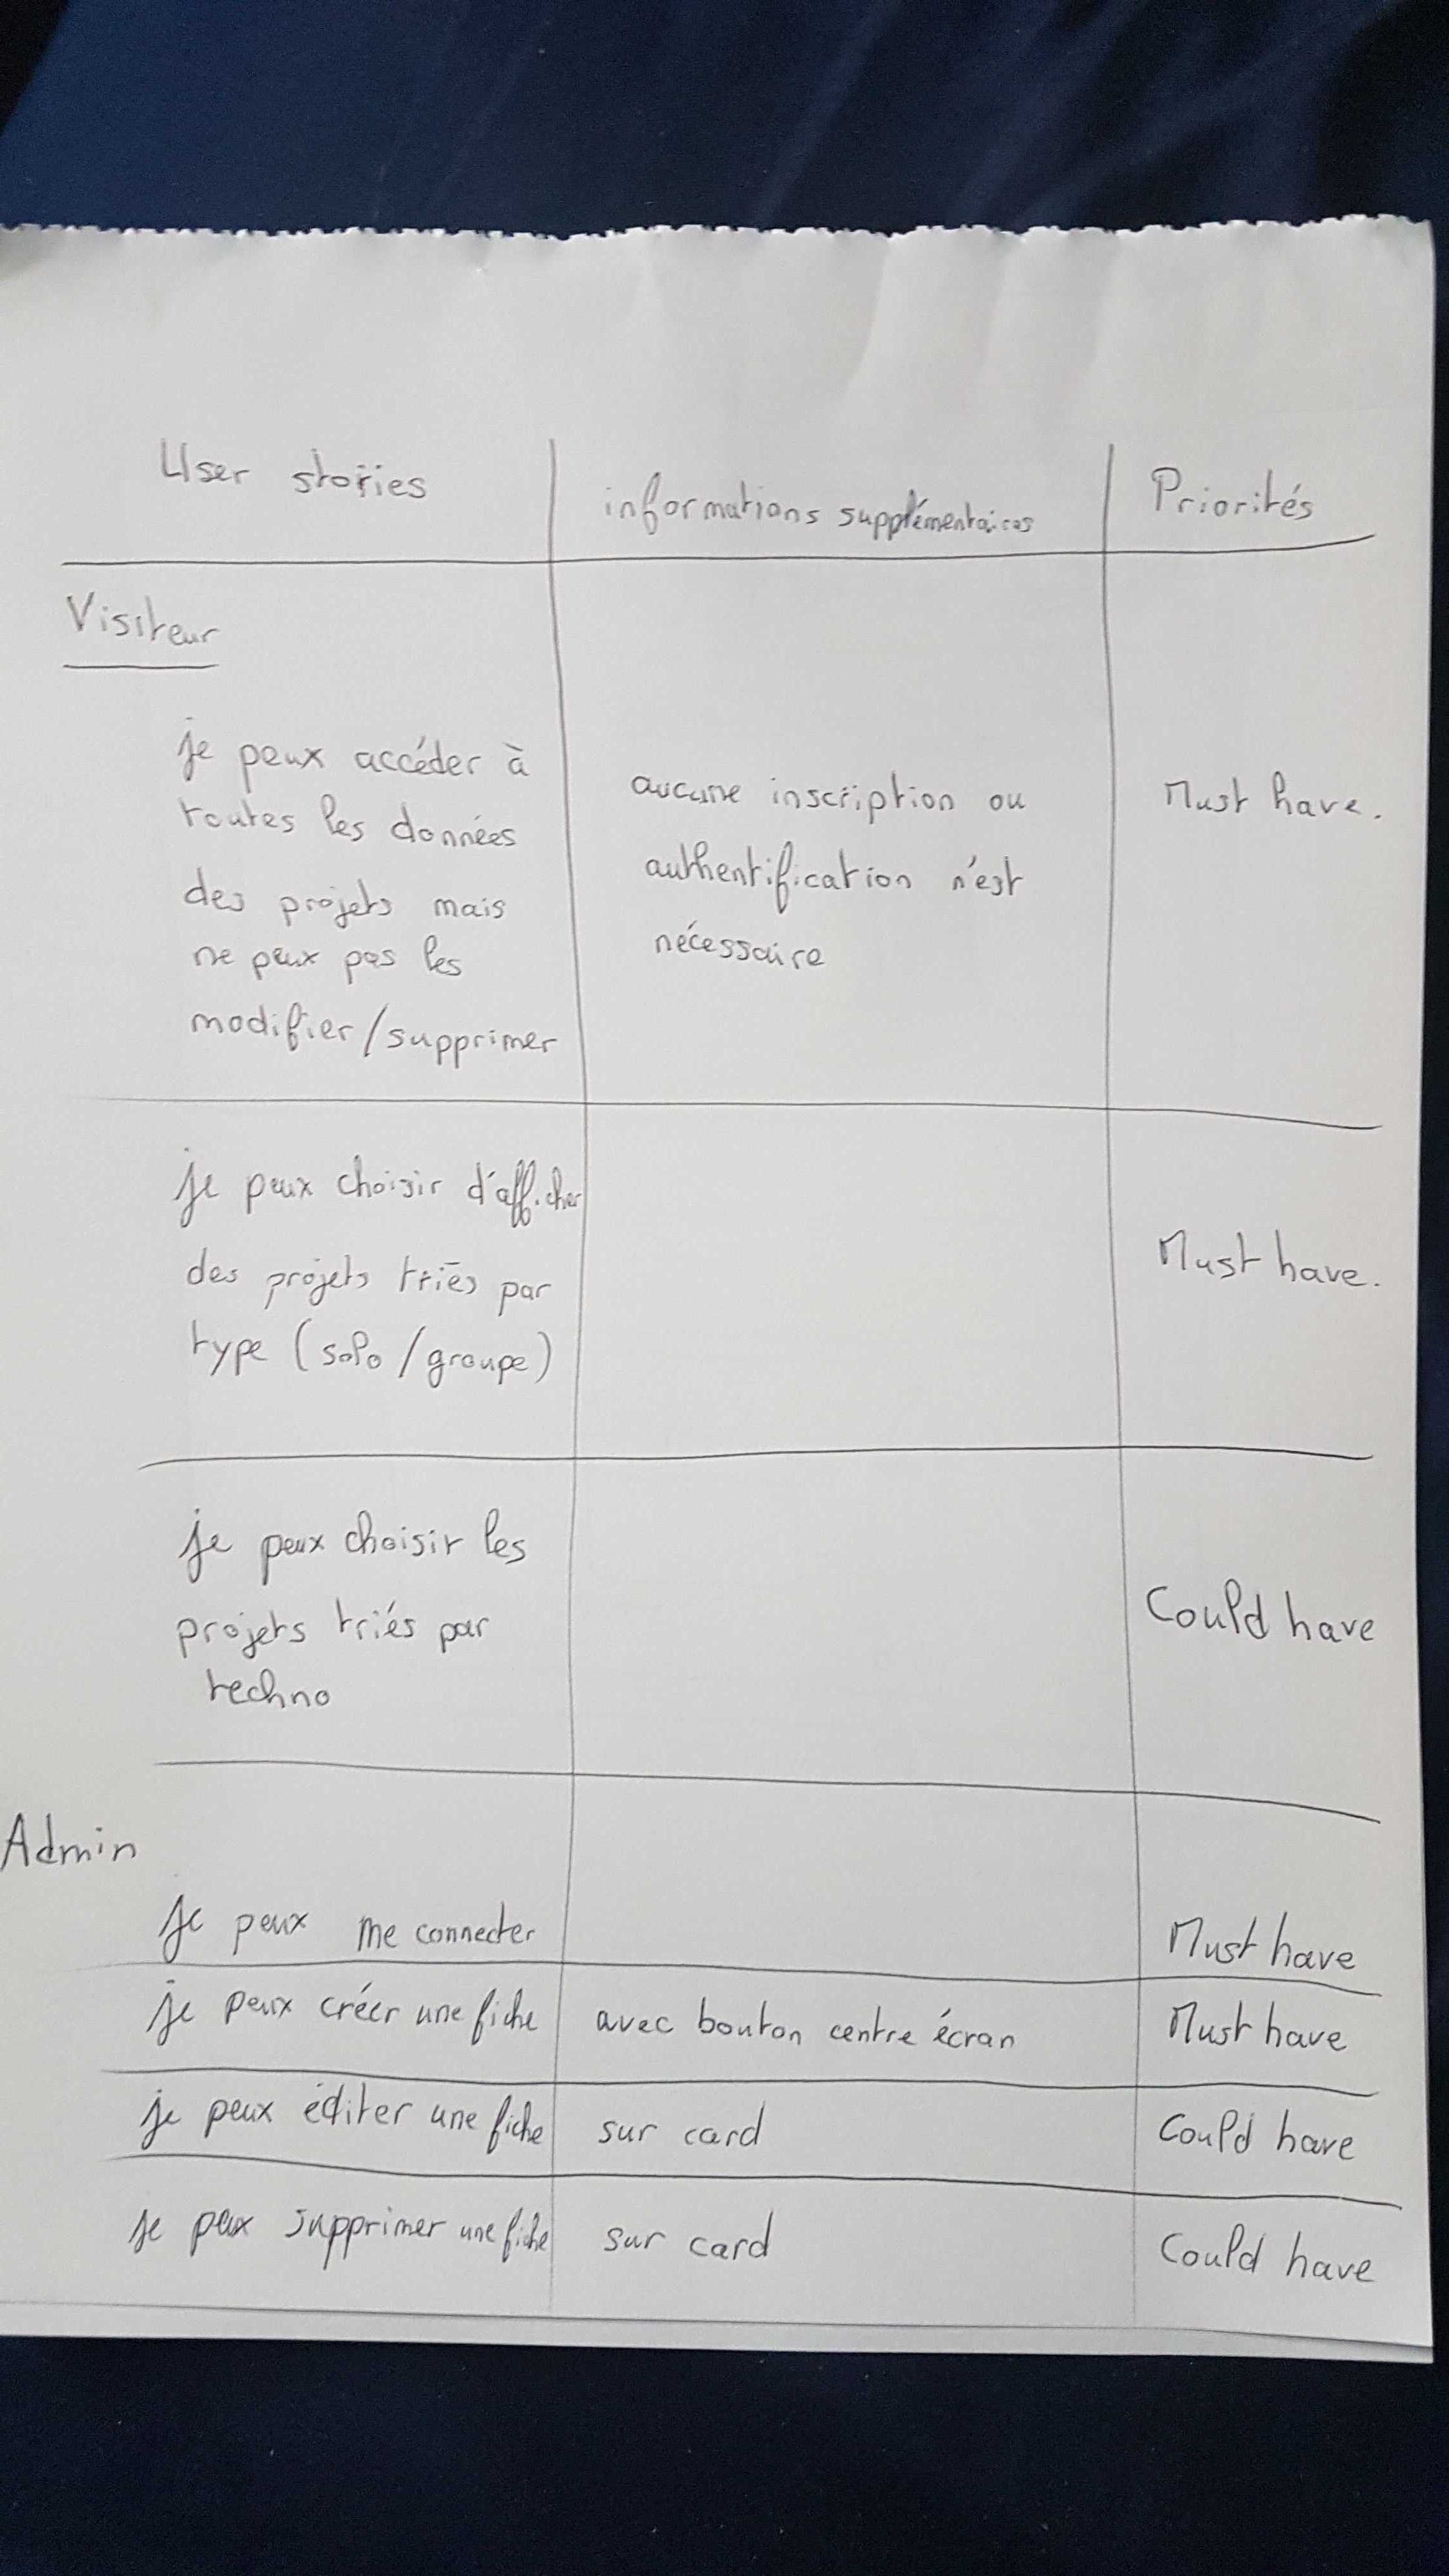 User stories
informations supplémentaires
Priorités
Visiteur
je peux accéder à
toutes les données
des projets mais
ne peux pas les
modifier/supprimer
aucune inscription ou
authentification n'est
nécessaire
Must have.
je peux choisir d'afficher
des projets triés par
type (solo/groupe)
Must have.
je peux choisir les
projets triés par
techno
Could have
Admin
je peux me connecter
Must have
je peux créer une fiche
avec bouton centre écran
Must have
je peux éditer une fiche
sur card
Could have
je peux supprimer une fiche
sur card
Could have